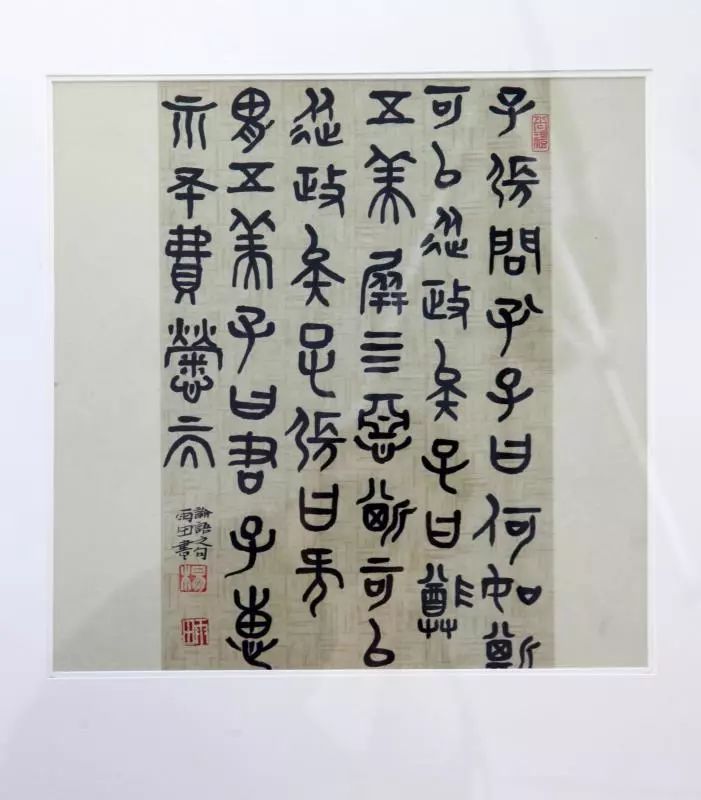 子張問孔子曰何如斯
可以從政矣子曰尊
五美屏四惡斯可以
從政矣子張曰何
胃五美子曰君子惠
而不費勞而
論語之句
雨田書